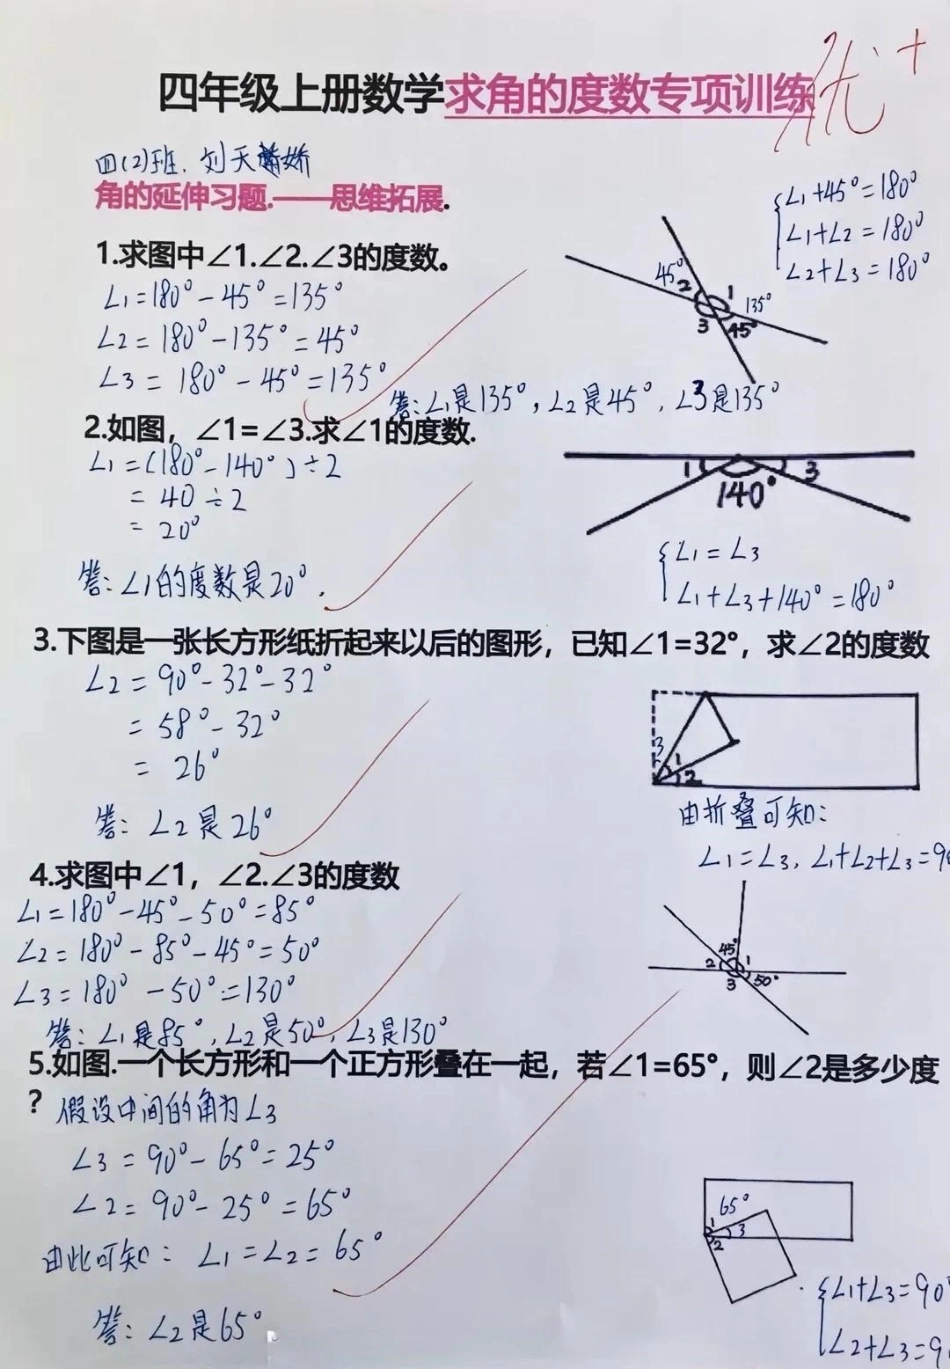 四年级上册数学求角的度数专项训练
优+
四(2)班.刘天娇
角的延伸习题.——思维拓展.
∠1+45°=180°
∠1+∠2=180°
∠2+∠3=180°
1.求图中∠1.∠2.∠3的度数。
∠1=180°-45°=135°
∠2=180°-135°=45°
∠3=180°-45°=135°
45°
2 1 135°
3 45°
答:∠1是135°,∠2是45°,∠3是135°
2.如图，∠1=∠3.求∠1的度数.
∠1=(180°-140°)÷2
=40÷2
=20°
答:∠1的度数是20°.
1 3
140°
∠1=∠3
∠1+∠3+140°=180°
3.下图是一张长方形纸折起来以后的图形，已知∠1=32°，求∠2的度数
∠2=90°-32°-32°
=58°-32°
=26°
答:∠2是26°
3 1
2
由折叠可知:
∠1=∠3,∠1+∠2+∠3=90
4.求图中∠1，∠2.∠3的度数
∠1=180°-45°-50°=85°
∠2=180°-85°-45°=50°
∠3=180°-50°=130°
答:∠1是85°,∠2是50°,∠3是130°
45°
2 1
3 50°
5.如图.一个长方形和一个正方形叠在一起，若∠1=65°，则∠2是多少度
?
假设中间的角为∠3
∠3=90°-65°=25°
∠2=90°-25°=65°
由此可知:∠1=∠2=65°
答:∠2是65°
65°
1 3
2
∠1+∠3=90°
∠2+∠3=9